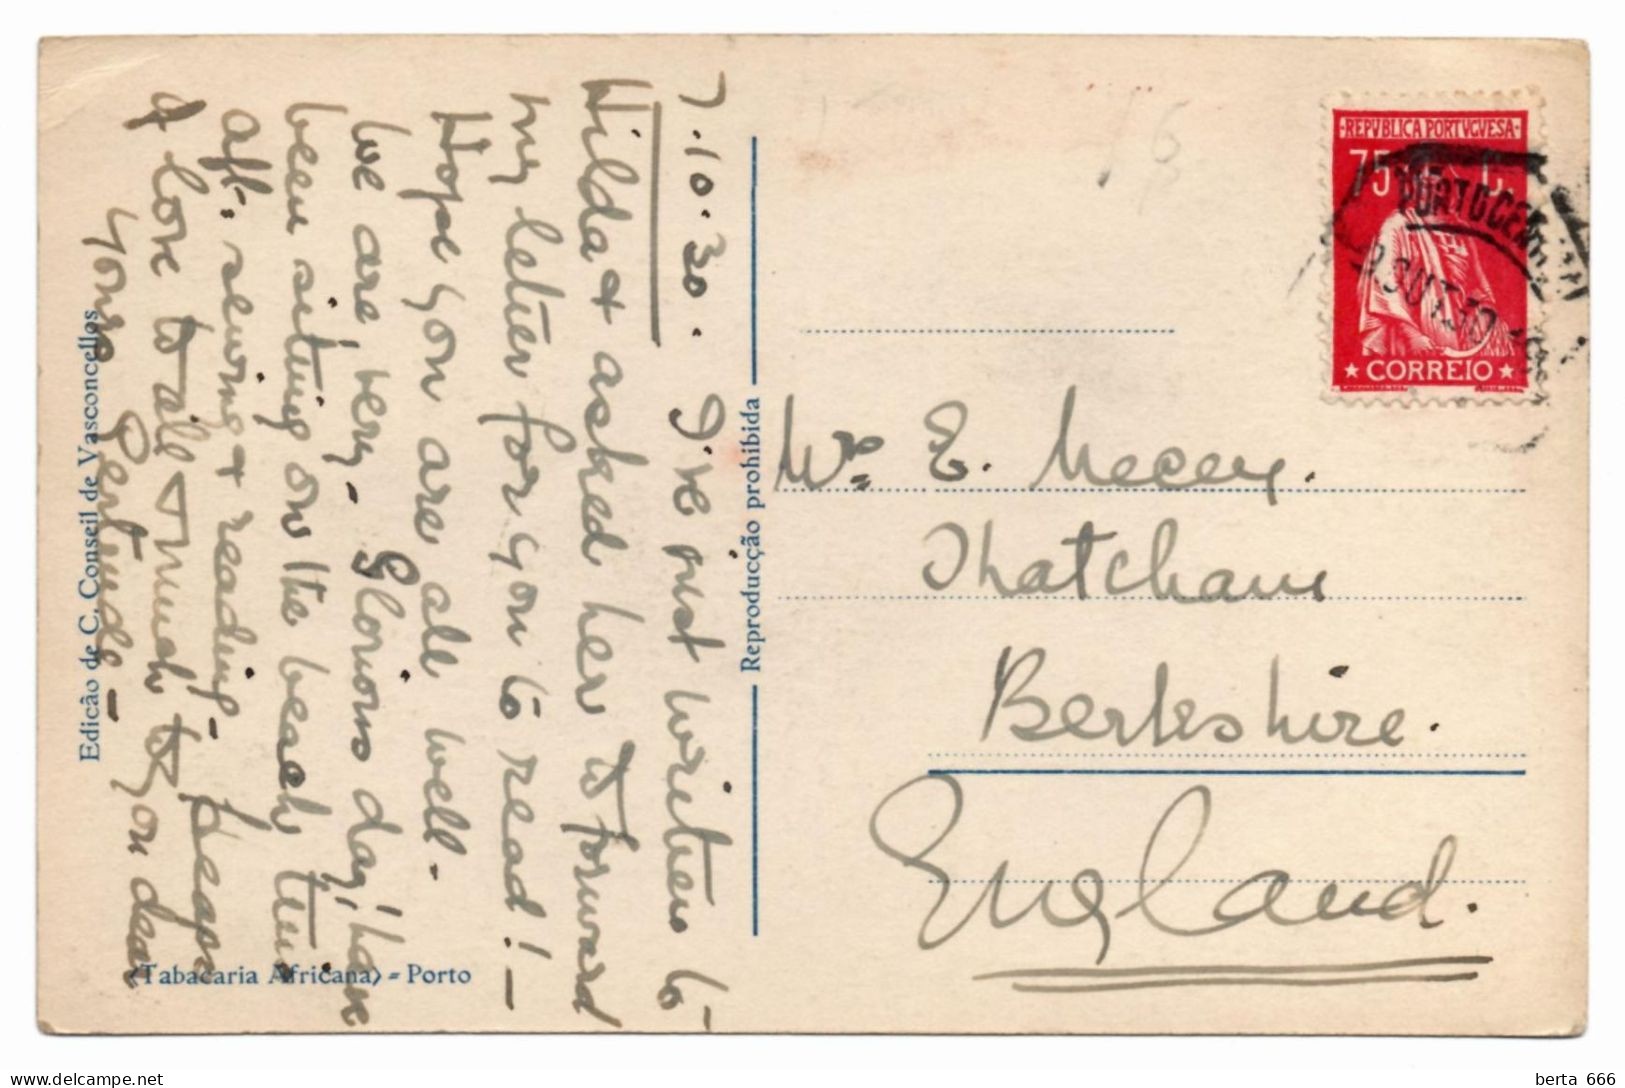 7.10.30. I've just written to
Hilda & asked her to forward
my letter for you to read! -
Hope you are all well -
We are very - Glorious day, have
been sitting on the beach this
aft. sewing & reading - heaps
of love to all & much to you dear
yours Gertrude -
Edição de C. Conseil de Vasconcellos
(Tabacaria Africana) = Porto
Reproducção prohibida
REPVBLICA PORTVGVESA
75 C.
CORREIO
PORTO CENTRAL
OUT 30
Mrs. E.
Thatcham
Berkshire.
England.
berta 666